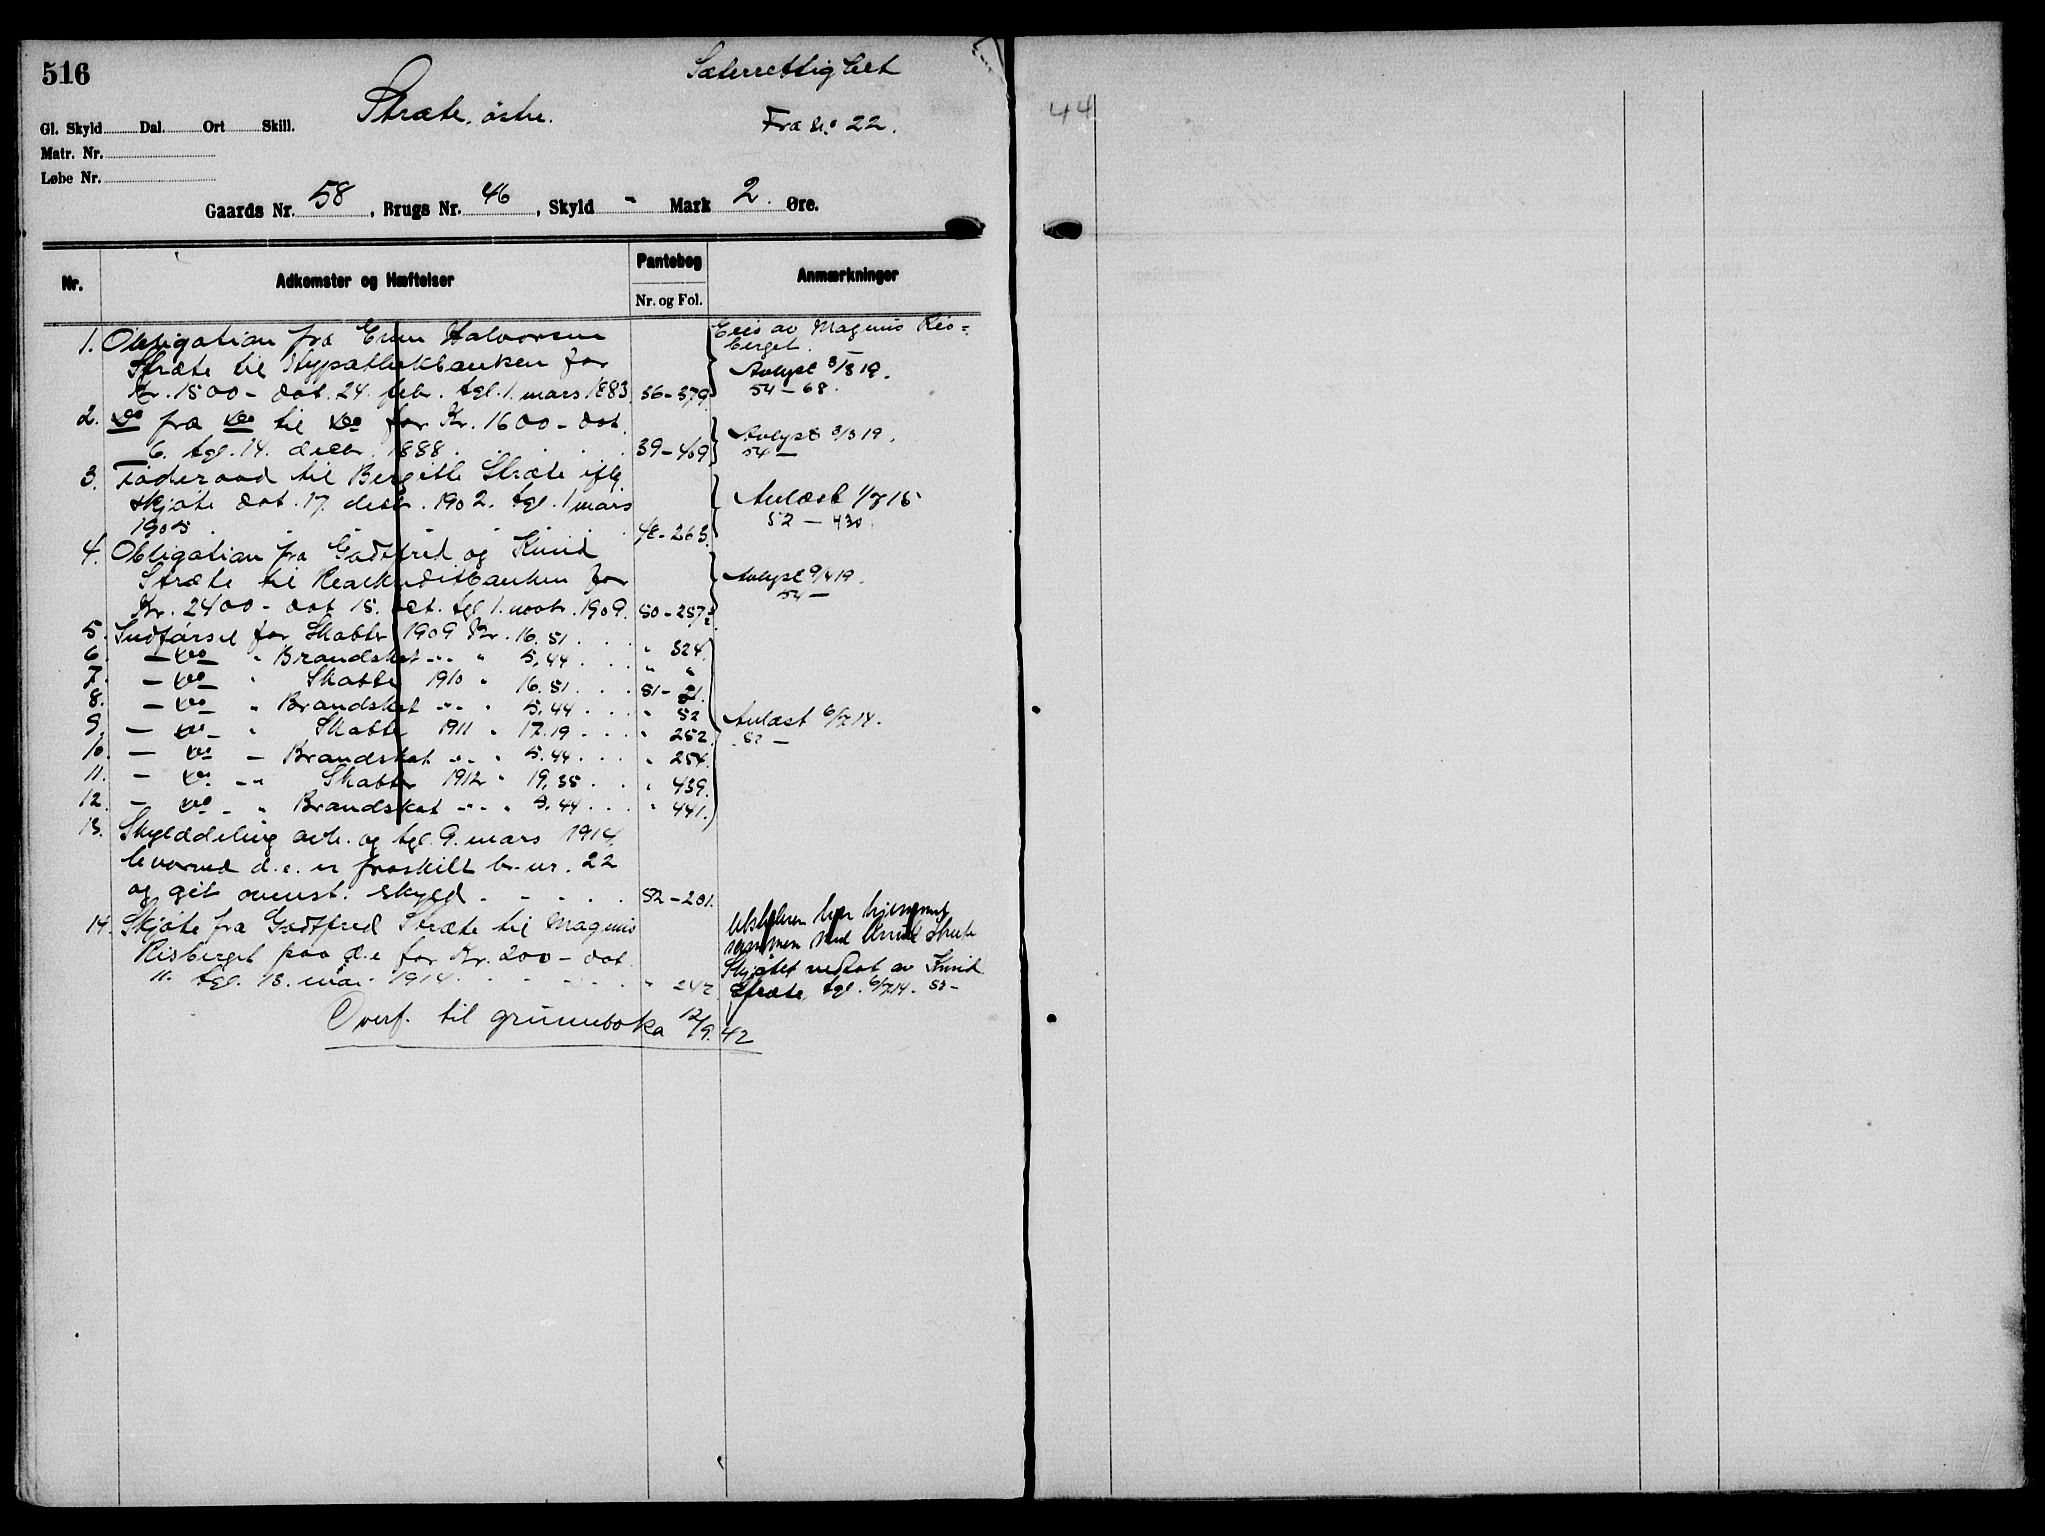 516
Sæterrettighet
Stræte, østre.
Fra No 22.
44
Gl. Skyld Dal. Ort Skill.
Matr. Nr.
Løbe Nr.
Gaards Nr. 58, Brugs Nr. 46, Skyld - Mark 2 Øre.
Nr. Adkomster og Hæftelser Pantebog Anmærkninger
Nr. og Fol.
1. Obligation fra Even Halvorsen
Stræte til Hypothekbanken for
Kr. 1500 - dat. 24. feb. tgl. 1. mars 1883. 36-379.
Eies av Magnus Ris=
berget.
Avlyst 3/3 19.
54-68.
2. do fra do til do for Kr. 1600 - dat.
6. tgl. 14. decbr. 1888. 39-409
Avlyst 3/3 19.
54 -
3. Føderaad til Bergitte Stræte iflg.
skjøte dat. 17. desbr. 1902. tgl. 1 mars
1905. 48-263.
Avlæst 1/7 15
52-430.
4. Obligation fra Godtfred og Knud
Stræte til Realkreditbanken for
Kr. 2400 - dat 15. okt. tgl. 1. novbr. 1909. 50-257.
Avlyst 9/4 19.
54 -
5. Indførsel for Skatter 1909 Kr. 16.51 . . . " 324.
6. - do - " Brandskat -"- " 5.44 . . . " "
7. - do - " Skatter 1910 " 16.51 . . . 51-21.
8. - do - " Brandskat -"- " 5.44 . . . " 52
9. - do - " Skatter 1911 " 17.19 . . . " 252.
Avlæst 6/7 14.
52 -
10. - do - Brandskat -"- " 5.44 . . . " 254.
11. - do -"- Skatter 1912 " 19.35 . . . " 439.
12. - do - " Brandskat -"- " 5.44 . . . " 441.
13. Skylddeling avh. og tgl. 9. mars 1914
hvorved d.e. er fraskilt br. nr. 22
og git ovenst. skyld . . . . 52-201.
14. Skjøte fra Godtfred Stræte til Magnus
Risberget paa d.e for Kr. 200 - dat.
11. tgl. 18. mai 1914 . . . . " 242.
Utstederen har hjemmel
sammen med Knud Stræte
Skjøtet vedtat av Knud
Stræte, tgl. 6/7 14. 52 -
Overf. til grunnboka 12/9. 42